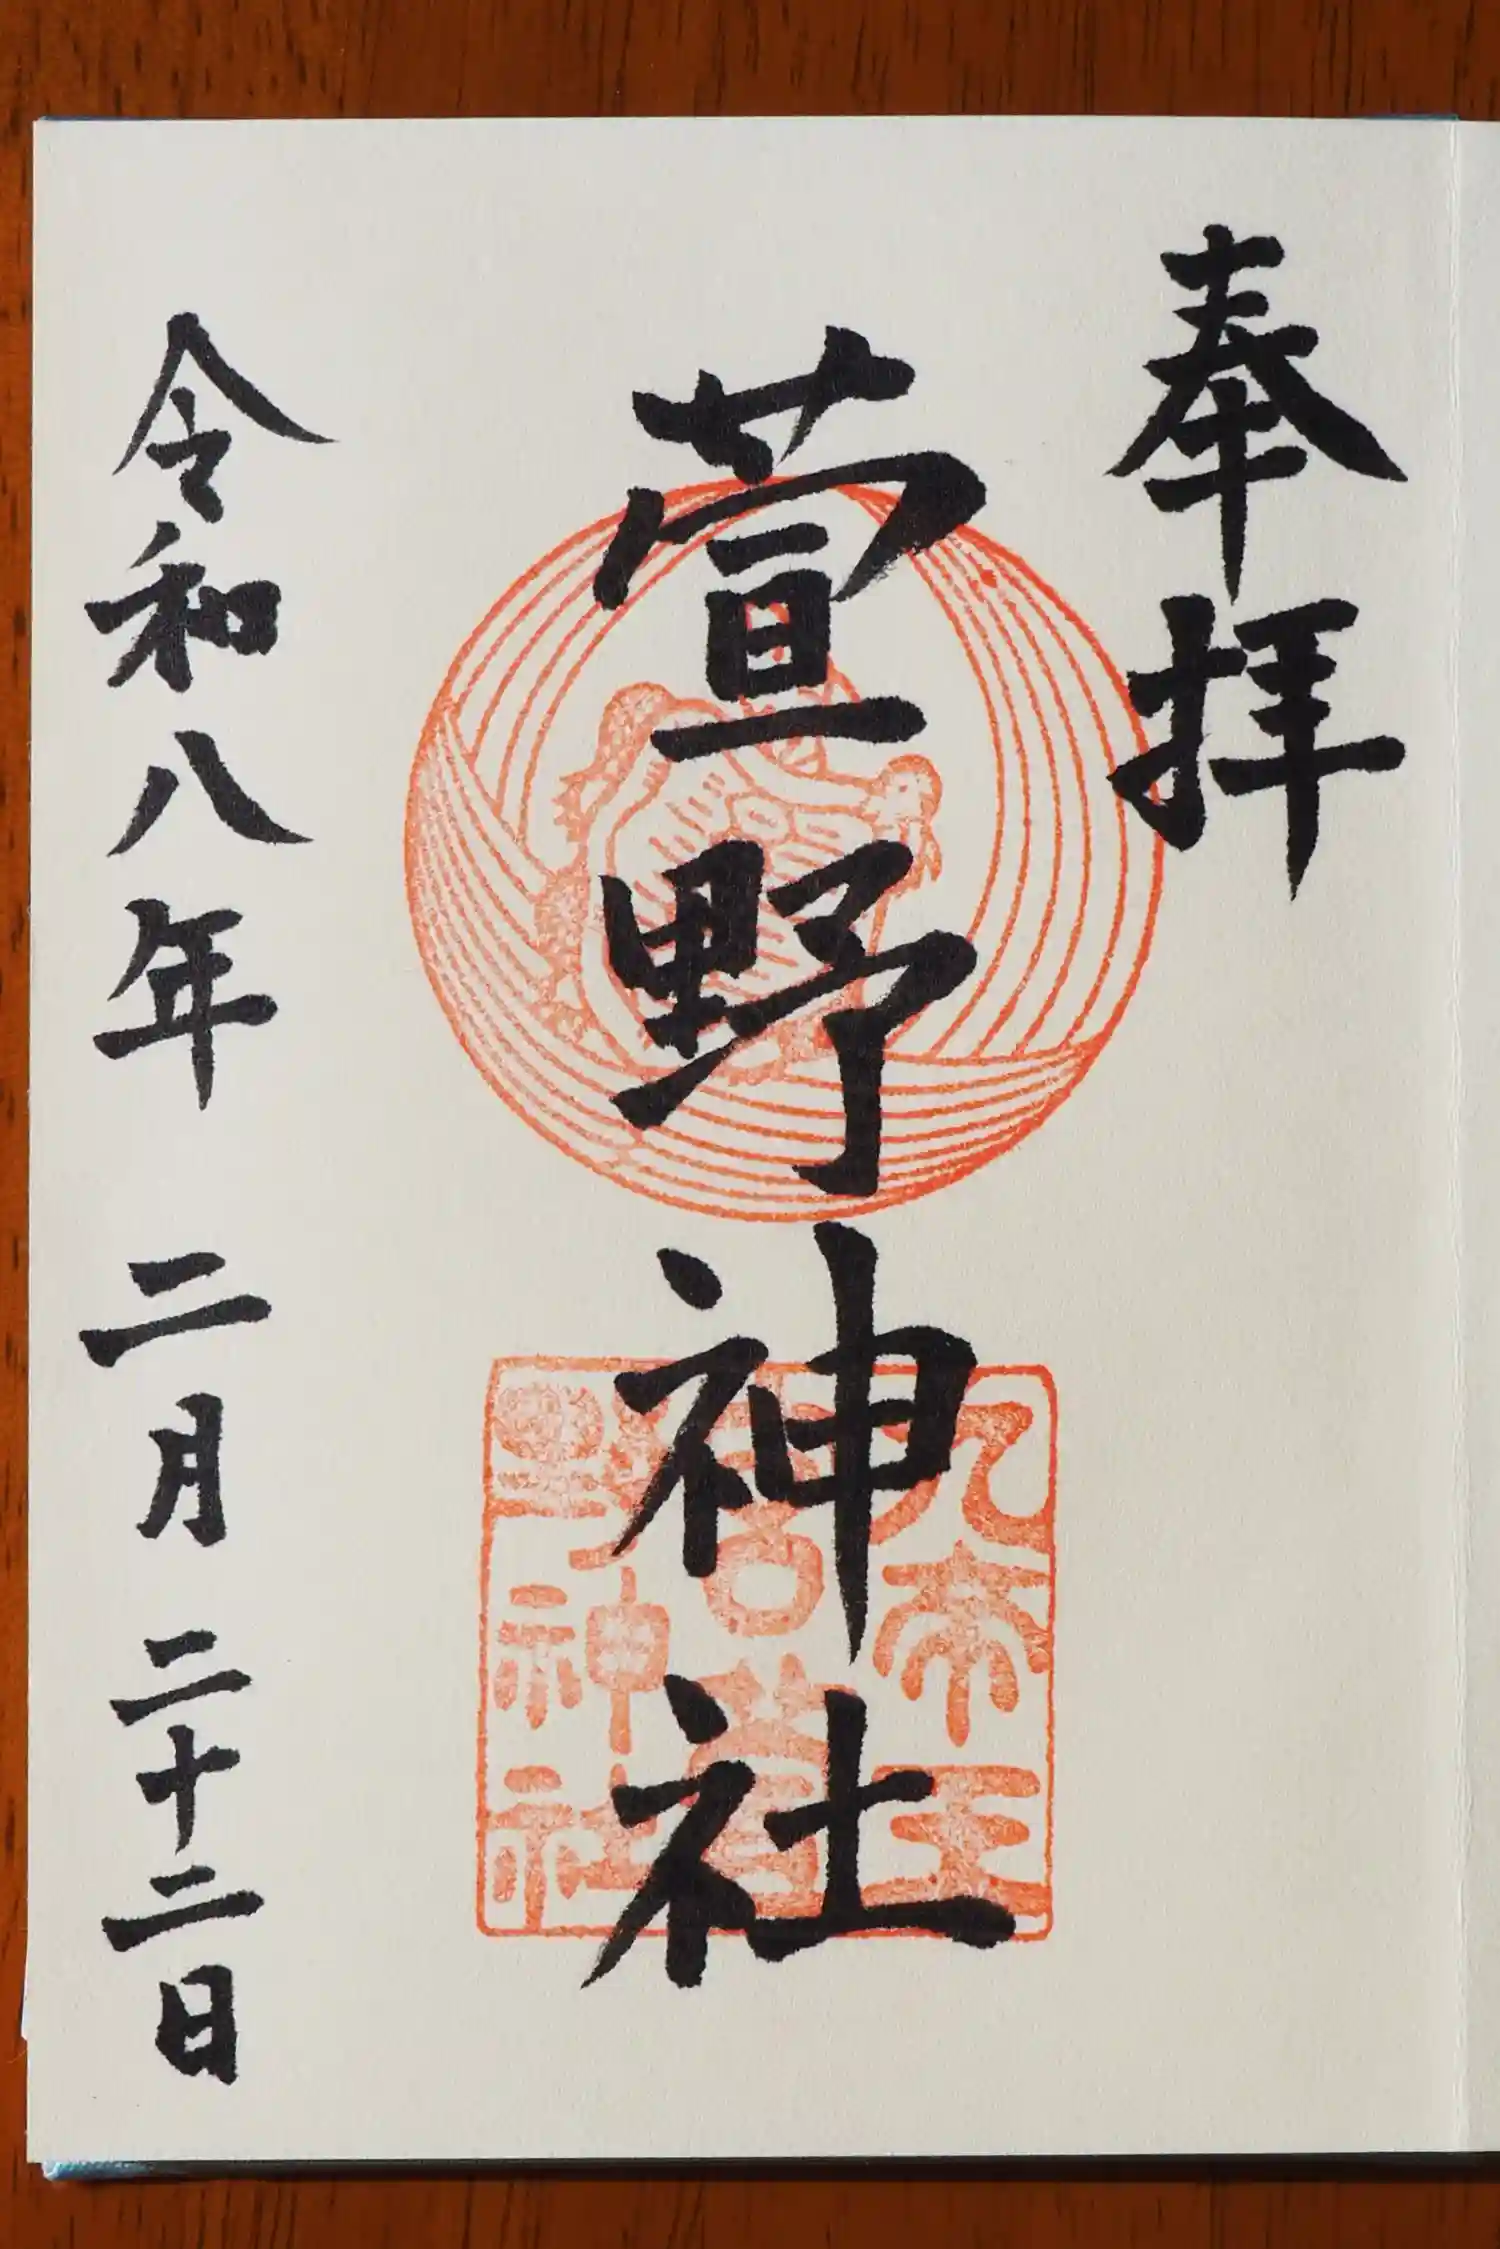 奉拝
萱野神社
神社
令和八年 二月 二十二日